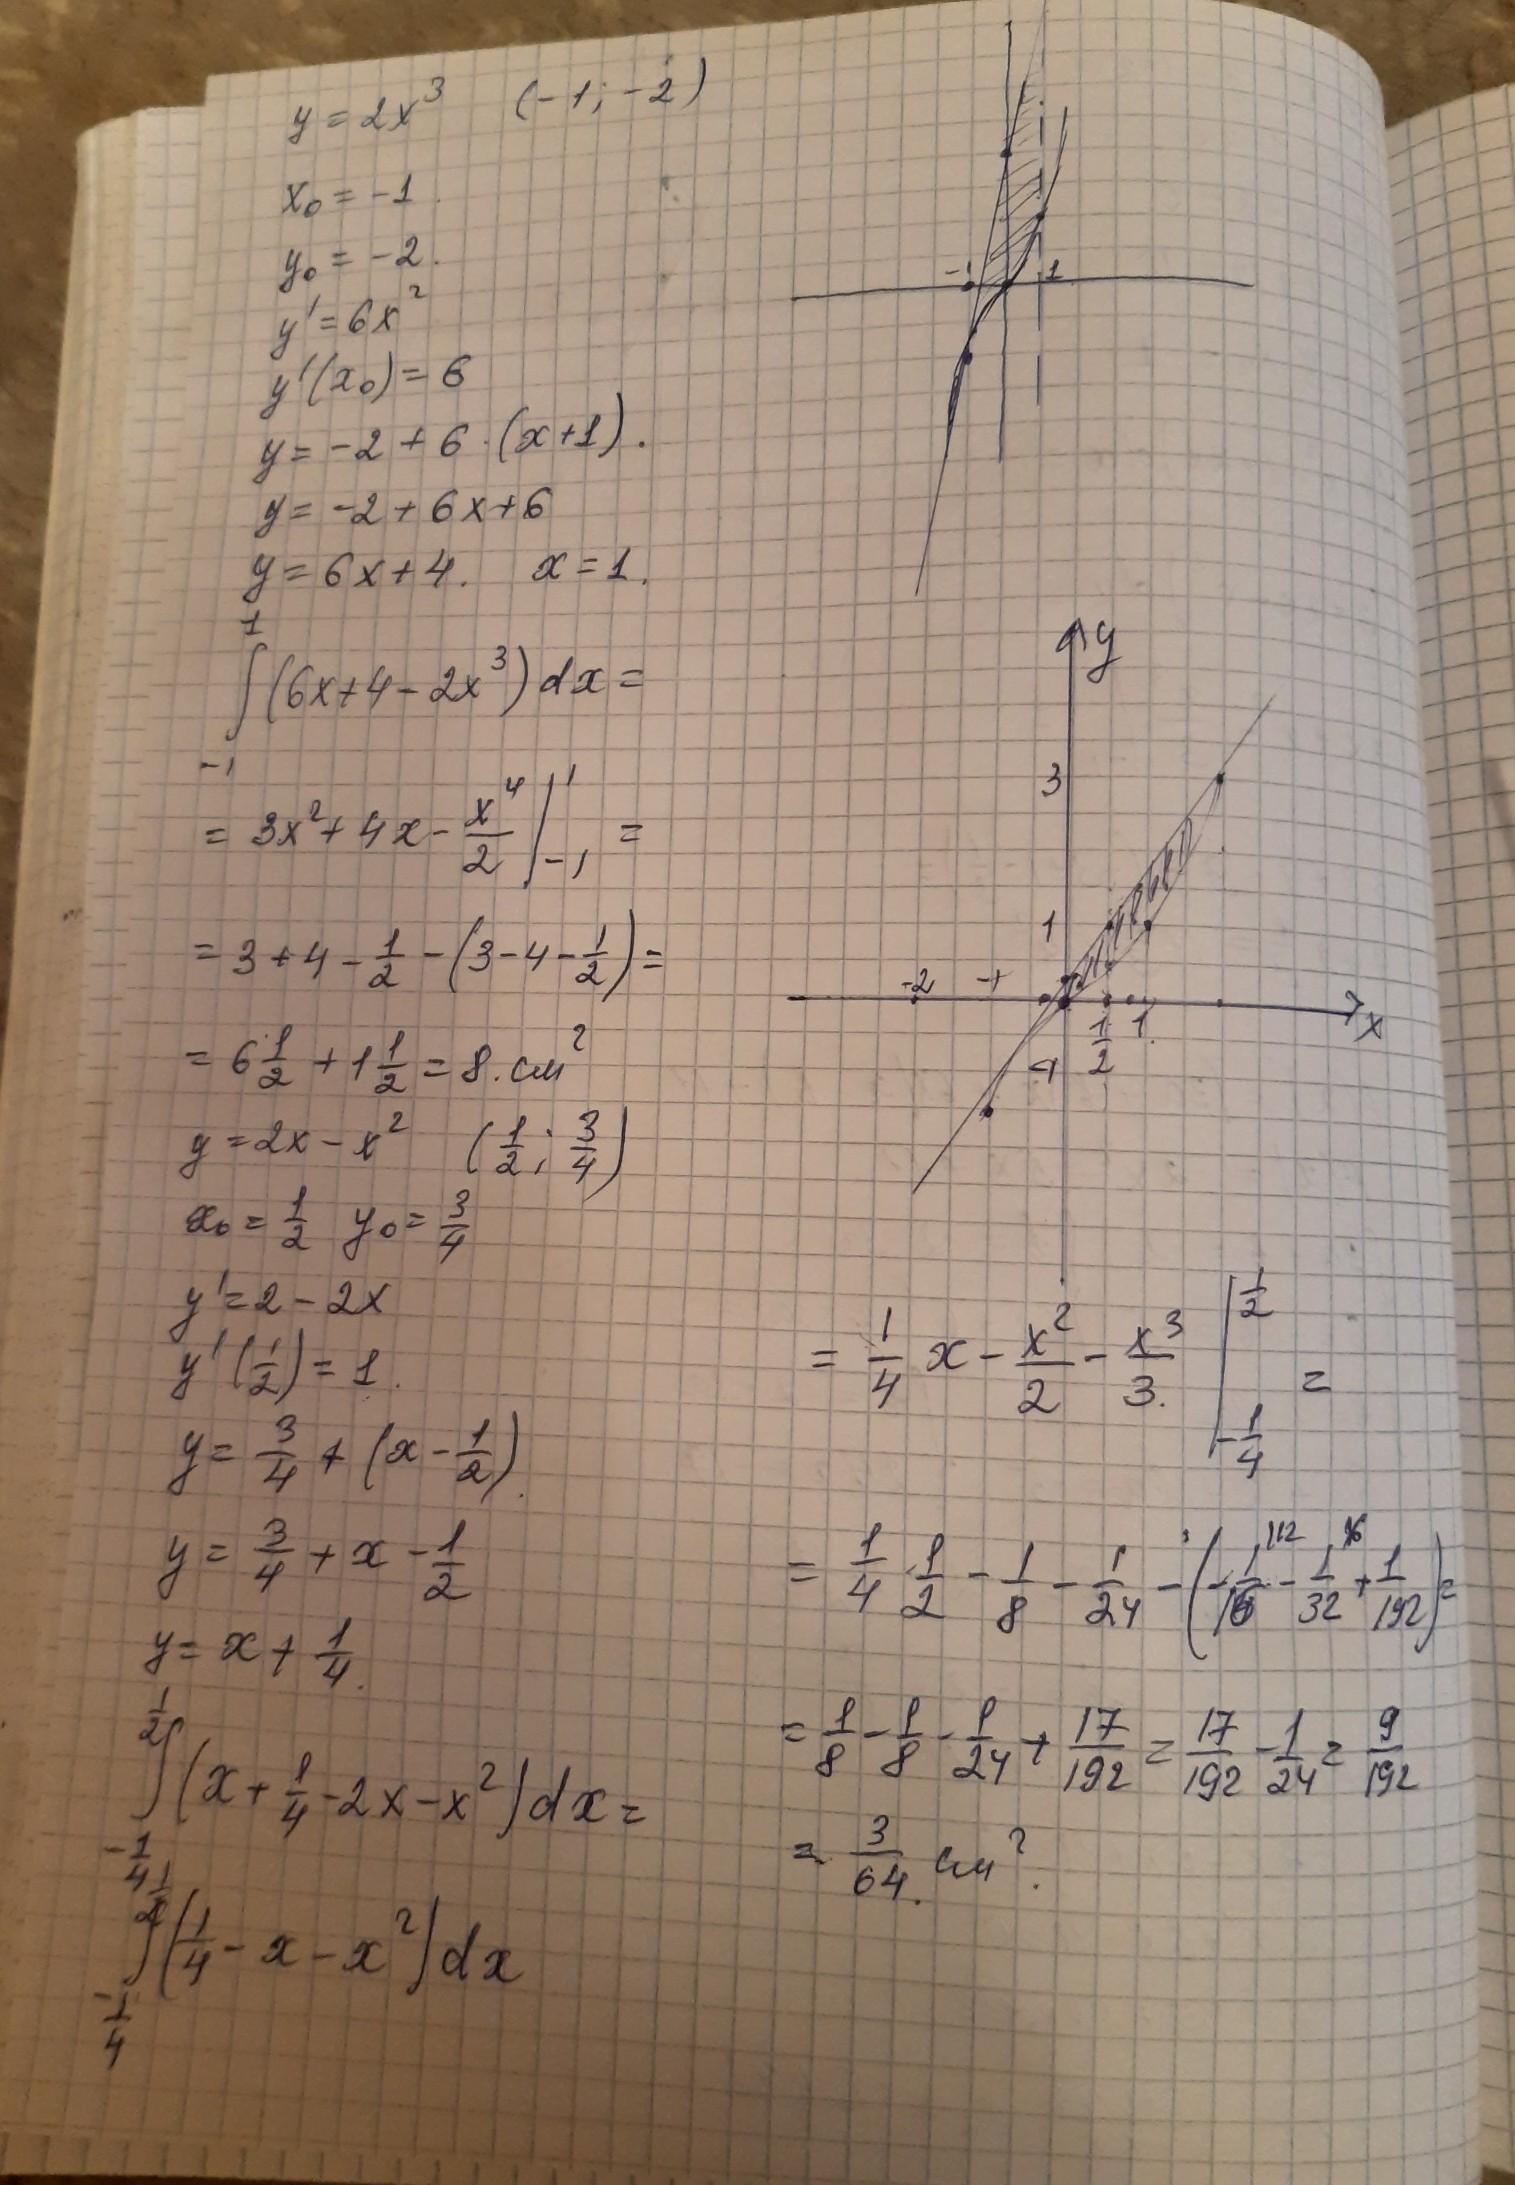 y = 2x³ (-1; -2)
x₀ = -1.
y₀ = -2.
y' = 6x²
y'(x₀) = 6
y = -2 + 6·(x+1).
y = -2 + 6x + 6
y = 6x + 4. x = 1.
∫₋₁¹ (6x + 4 - 2x³) dx =
= 3x² + 4x - x⁴/2 |₋₁¹ =
= 3 + 4 - 1/2 - (3 - 4 - 1/2) =
= 6 1/2 + 1 1/2 = 8. см²
y = 2x - x² (1/2; 3/4)
x₀ = 1/2 y₀ = 3/4
y' = 2 - 2x
y'(1/2) = 1.
y = 3/4 + (x - 1/2).
y = 3/4 + x - 1/2
y = x + 1/4.
∫ from -1/4 to 1/2 (x + 1/4 - 2x - x²) dx =
∫ from -1/4 to 1/2 (1/4 - x - x²) dx
-1 1
y
3
1
-2 -1
1/2 1 x
-1
= 1/4 x - x²/2 - x³/3. | from -1/4 to 1/2 =
= 1/4 · 1/2 - 1/8 - 1/24 - (-1/16 \12 - 1/32 \6 + 1/192) =
= 1/8 - 1/8 - 1/24 + 17/192 = 17/192 - 1/24 = 9/192
= 3/64. см².